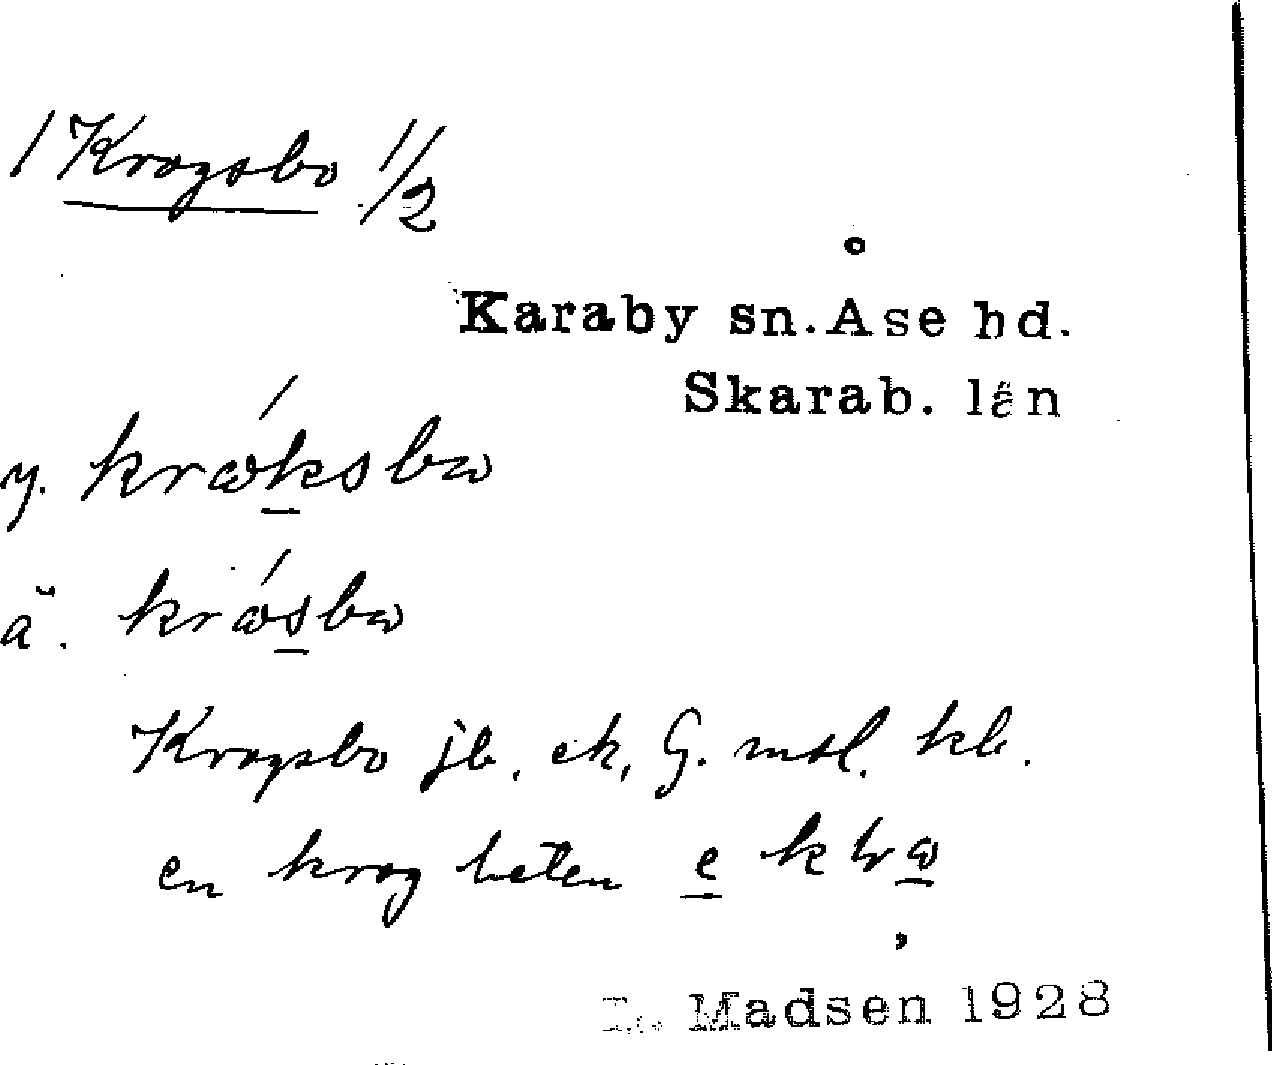 1 Krogsbo 1/2
Karaby sn. Åse hd.
Skarab. län
y. kråksbω
ä. kråsbω
Krogsbo jb. ek. G. mtl. kb.
en krog heten e
Madsen 1928